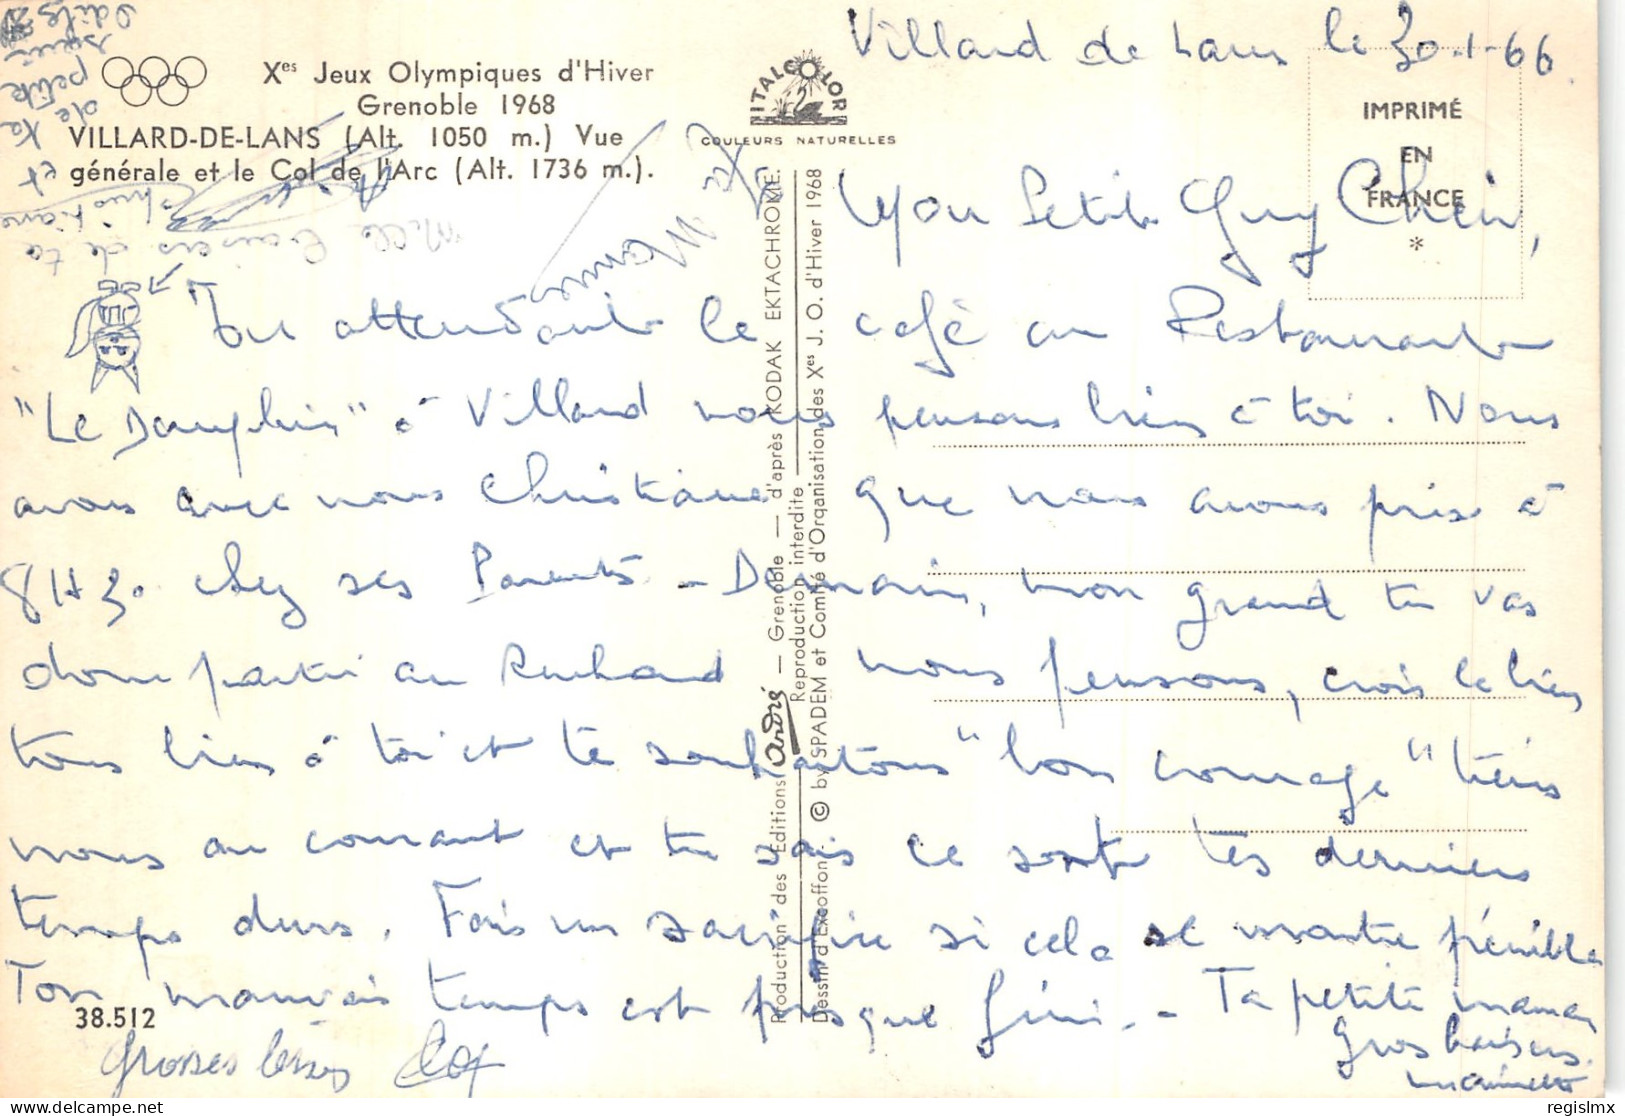 Villard de Lans le 30-1-66.
Xes Jeux Olympiques d'Hiver
Grenoble 1968
VILLARD-DE-LANS (Alt. 1050 m.) Vue
générale et le Col de l'Arc (Alt. 1736 m.).
ITALCOLOR
COULEURS NATURELLES
IMPRIMÉ
EN
FRANCE
*
Mon Petit Guy Chéri,
En attendant le café au Restaurant
"Le Dauphin" à Villard nous pensons bien à toi. Nous
avons avec nous Christiane que nous avons pris à
8H30 chez ses Parents - Demain, mon grand tu vas
donc partir au nous pensons, crois le bien
tous bien à toi et te souhaitons "bon courage" tiens
nous au courant et tu sais ce sont tes derniers
temps durs. Fais un sacrifice si cela se montre pénible
Ton mauvais temps est presque fini. - Ta petite maman
Gros baisers.
Grosses bises
Mille baisers de ta
Christiane
et
de ta
petite
sœur
Odile
38.512
Production des Editions André — Grenoble — d'après KODAK EKTACHROME.
Reproduction interdite
Dessin d'Excoffon - © by SPADEM et Comité d'Organisation des Xes J. O. d'Hiver 1968
regislmx